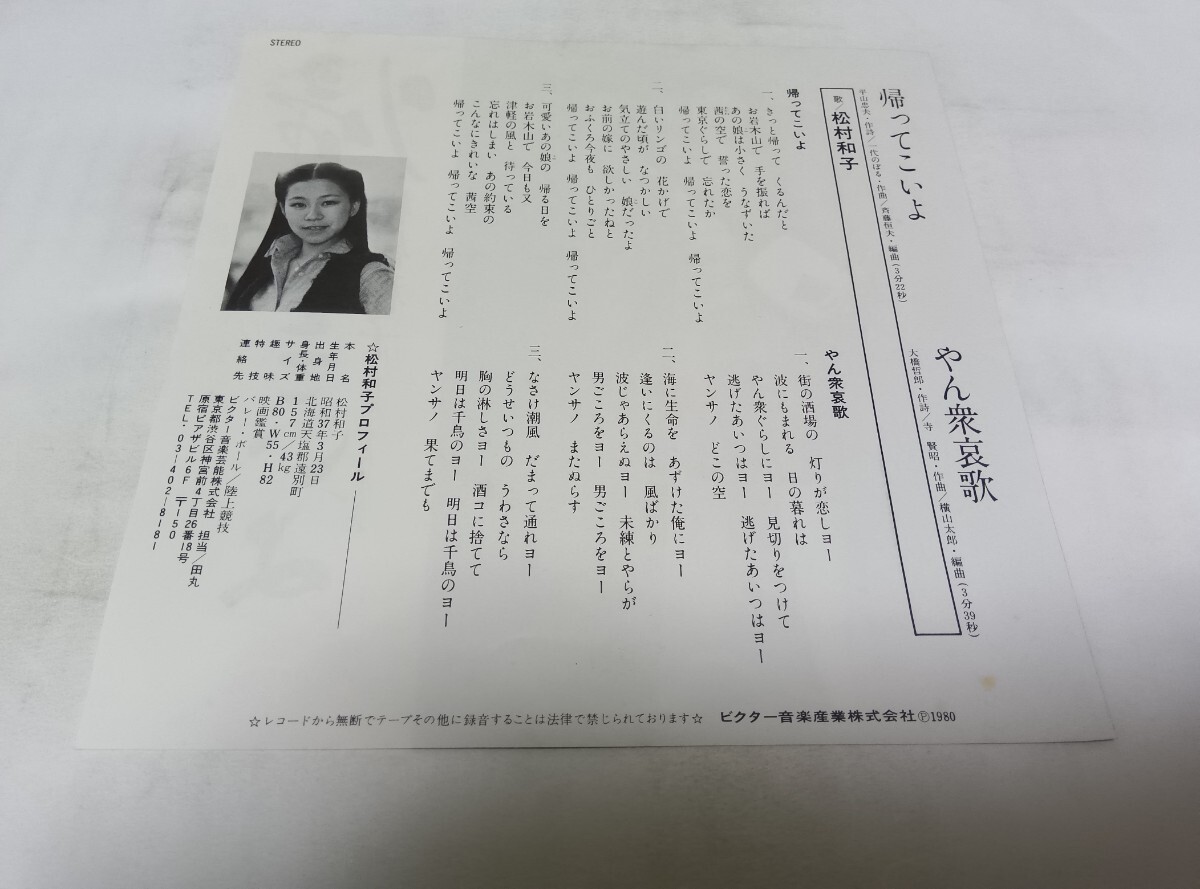 STEREO
帰ってこいよ
平山忠夫・作詩/一代のぼる・作曲/斉藤恒夫・編曲(3分22秒)
やん衆哀歌
大橋哲郎・作詩/寺 賢昭・作曲/横山太郎・編曲(3分39秒)
歌/松村和子
帰ってこいよ
一、きっと帰って くるんだと
お岩木山で 手を振れば
あの娘は小さく うなずいた
茜の空で 誓った恋を
東京ぐらしで 忘れたか
帰ってこいよ 帰ってこいよ 帰ってこいよ
二、白いリンゴの 花かげで
遊んだ頃が なつかしい
気立てのやさしい 娘だったよ
お前の嫁に 欲しかったねと
おふくろ今夜も ひとりごと
帰ってこいよ 帰ってこいよ 帰ってこいよ
三、可愛いあの娘の 帰る日を
お岩木山で 今日も又
津軽の風と 待っている
忘れはしまい あの約束の
こんなにきれいな 茜空
帰ってこいよ 帰ってこいよ 帰ってこいよ
やん衆哀歌
一、街の酒場の 灯りが恋しヨー
波にもまれる 日の暮れは
やん衆ぐらしにヨー 見切りをつけて
逃げたあいつはヨー 逃げたあいつはヨー
ヤンサノ どこの空
二、海に生命を あずけた俺にヨー
逢いにくるのは 風ばかり
波じゃあらえぬヨー 未練とやらが
男ごころをヨー 男ごころをヨー
ヤンサノ またぬらす
三、なさけ潮風 だまって通れヨー
どうせいつもの うわさなら
胸の淋しさヨー 酒コに捨てて
明日は千鳥のヨー 明日は千鳥のヨー
ヤンサノ 果てまでも
☆松村和子プロフィール
本名 松村和子
生年月日 昭和37年3月23日
出身地 北海道天塩郡遠別町
身長・体重 157cm/43kg
サイズ B80・W55・H82
趣味 映画鑑賞
特技 バレー・ボール/陸上競技
連絡先 ビクター音楽芸能株式会社 担当/田丸
東京都渋谷区神宮前4丁目26番8号
原宿ピアザビル6F 〒150
TEL・03-402-8181
☆レコードから無断でテープその他に録音することは法律で禁じられております☆ ビクター音楽産業株式会社Ⓟ1980